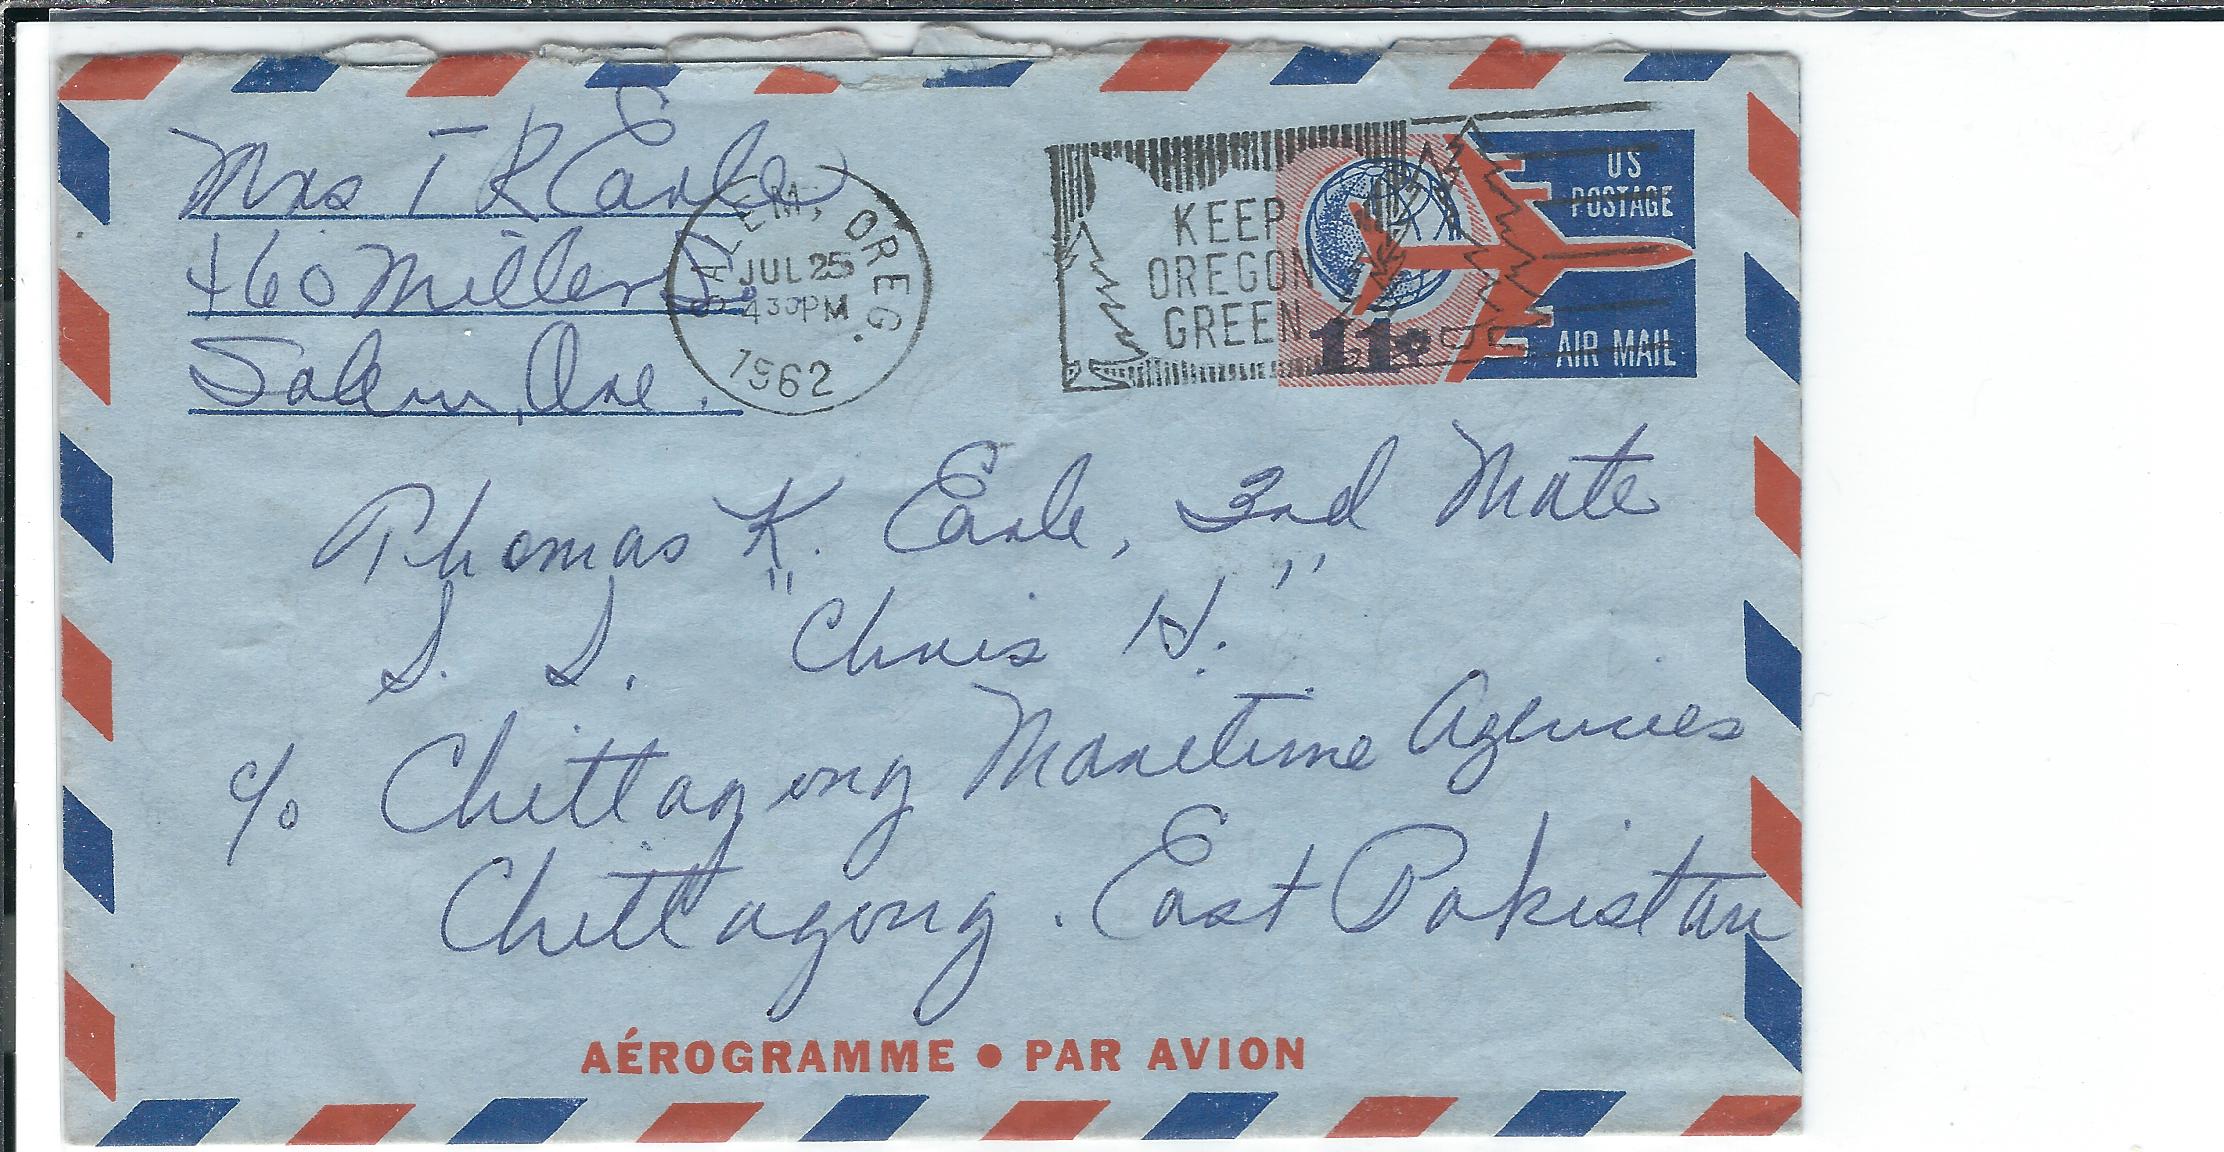 Mrs T R Earle
460 Miller S
Salem, Ore.
SALEM, OREG.
JUL 25
4 30 PM
1962
KEEP
OREGON
GREEN
US
POSTAGE
11¢
AIR MAIL
Thomas K. Earle, 2nd Mate
S. S. "Chris H."
c/o Chittagong Maritime Agencies
Chittagong. East Pakistan
AÉROGRAMME • PAR AVION